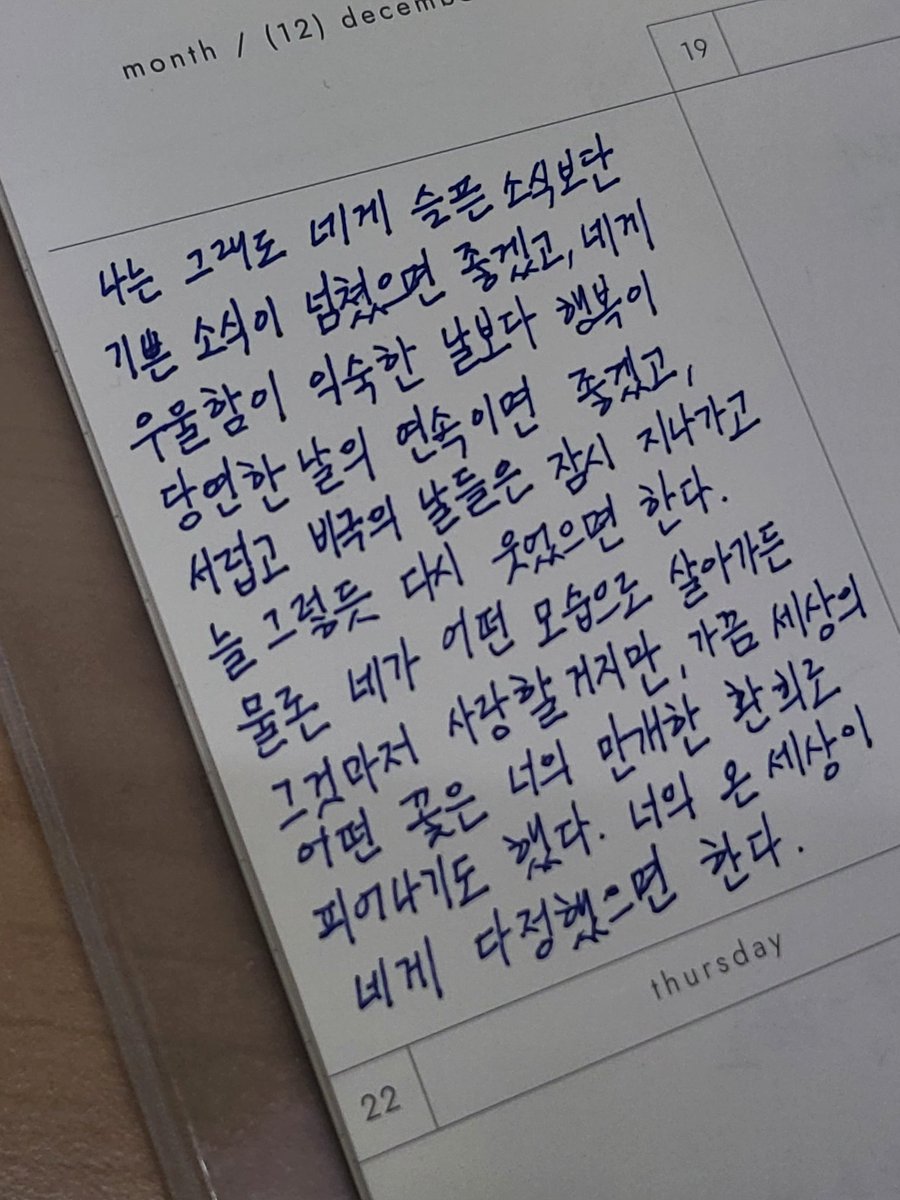 month / (12) decemb
19
나는 그래도 네게 슬픈 소식보단
기쁜 소식이 넘쳤으면 좋겠고, 네게
우울함이 익숙한 날보다 행복이
당연한 날의 연속이면 좋겠고,
서럽고 비극의 날들은 잠시 지나가고
늘 그렇듯 다시 웃었으면 한다.
물론 네가 어떤 모습으로 살아가든
그것마저 사랑할거지만, 가끔 세상의
어떤 꽃은 너의 만개한 환희로
피어나기도 했다. 너의 온 세상이
네게 다정했으면 한다.
thursday
22